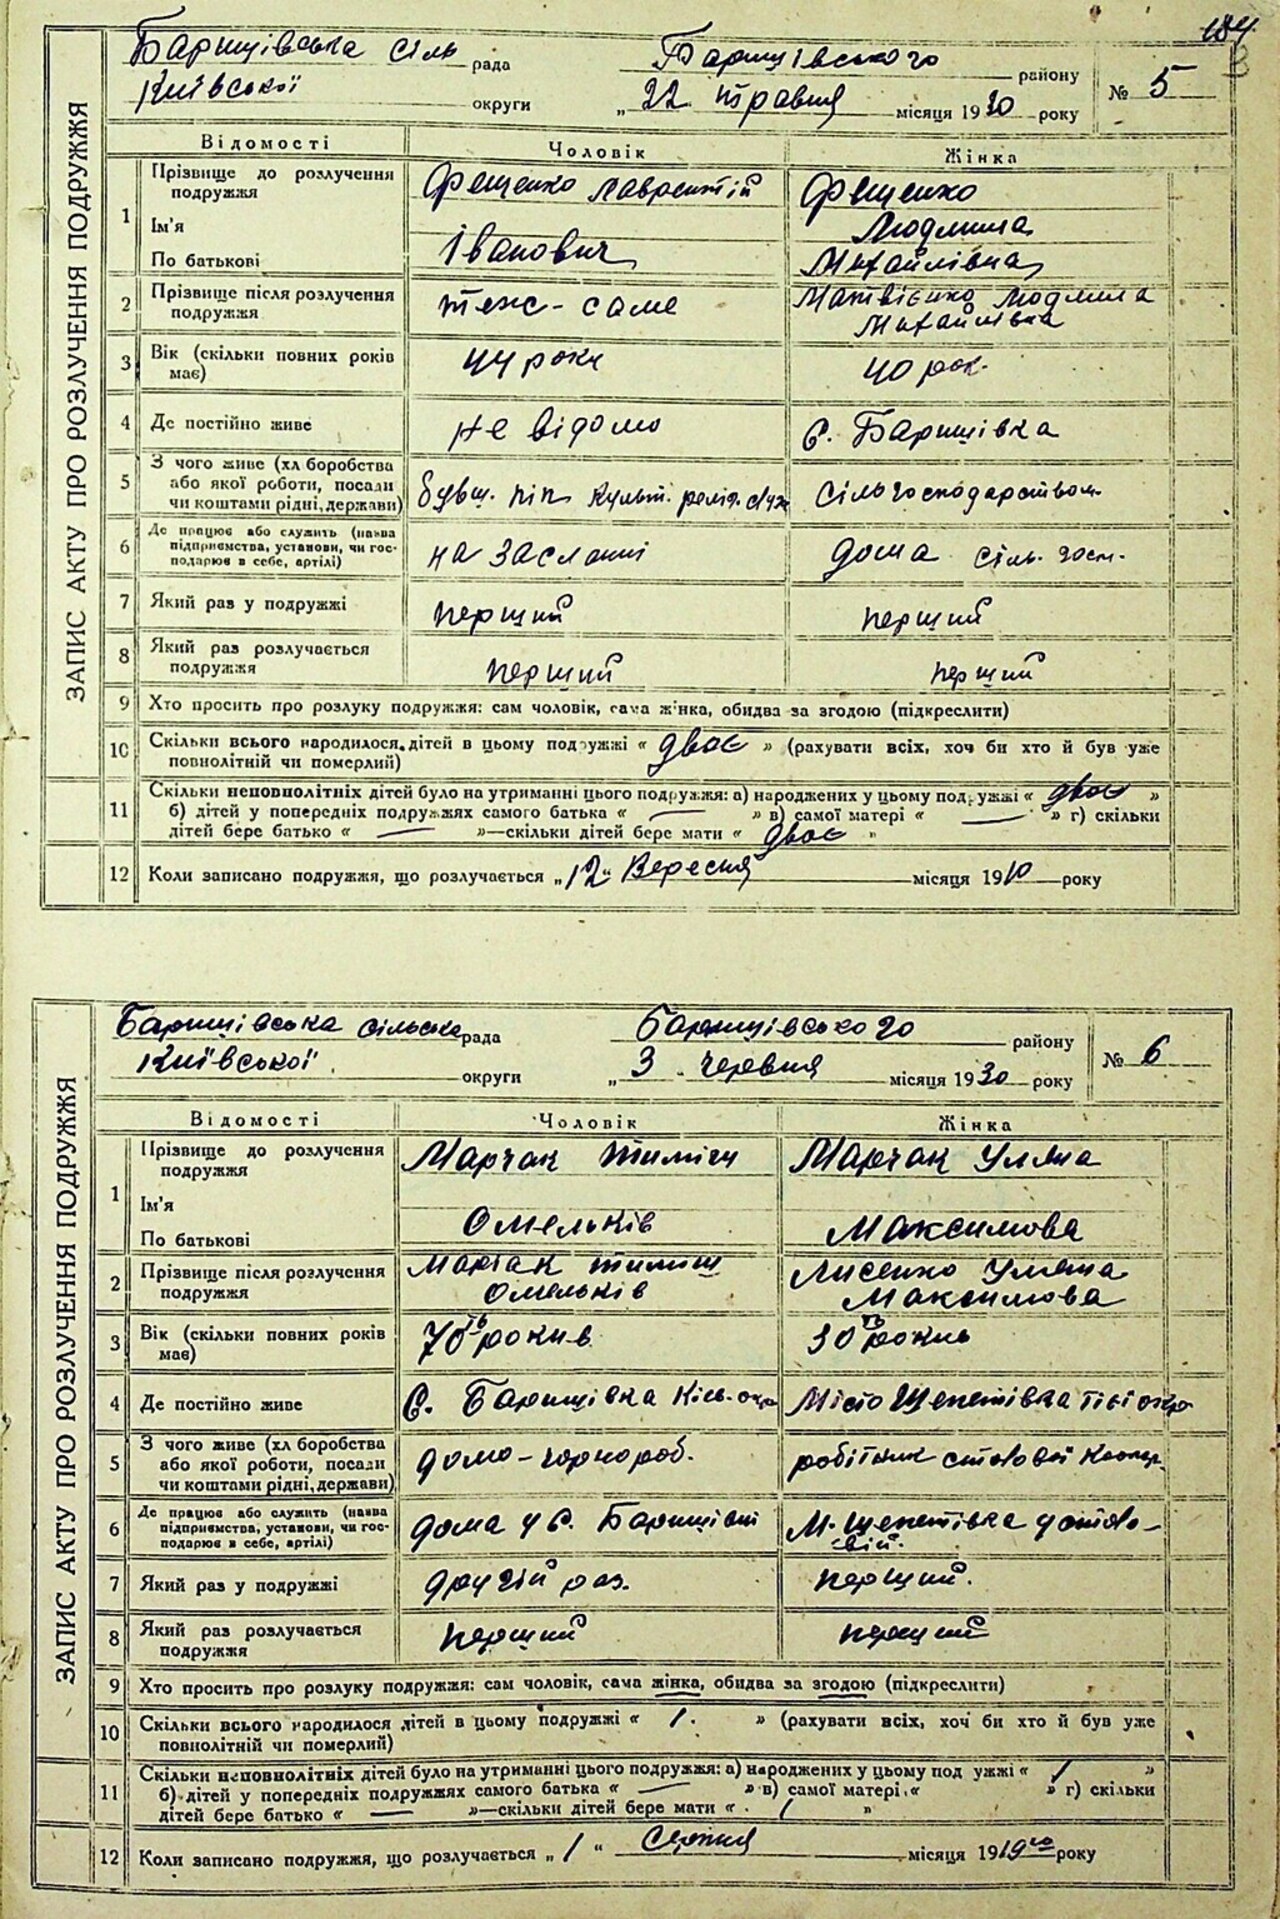 184
ЗАПИС АКТУ ПРО РОЗЛУЧЕННЯ ПОДРУЖЖЯ
Баришівська сіль рада Баришівського району
Київської округи „22 травня місяця 1930 року № 5
Відомості Чоловік Жінка
1 Прізвище до розлучення подружжя Фещенко Лаврентій Фещенко
Ім'я Людмила
По батькові Іванович Михайлівна
2 Прізвище після розлучення теж-саме Матвієнко Людмила
подружжя Михайлівна
3 Вік (скільки повних років має) 44 роки 40 рок.
4 Де постійно живе не відомо С. Баришівка
5 З чого живе (хл боробства
або якої роботи, посади
чи коштами рідні, держави) бувш. піп культ. реліг. служ Сільгосподарством
6 Де працює або служить (назва
підприємства, установи, чи гос-
подарює в себе, артілі) на засланні дома сіль. госп.
7 Який раз у подружжі перший перший
8 Який раз розлучається
подружжя перший перший
9 Хто просить про розлуку подружжя: сам чоловік, сама жінка, обидва за згодою (підкреслити)
10 Скільки всього народилося дітей в цьому подружжі « двоє » (рахувати всіх, хоч би хто й був уже
повнолітній чи померлий)
11 Скільки неповнолітніх дітей було на утриманні цього подружжя: а) народжених у цьому подружжі « двоє »
б) дітей у попередніх подружжях самого батька « — » в) самої матері « — » г) скільки
дітей бере батько « — »—скільки дітей бере мати « двоє »
12 Коли записано подружжя, що розлучається „12“ Вересня місяця 1910 року
ЗАПИС АКТУ ПРО РОЗЛУЧЕННЯ ПОДРУЖЖЯ
Баришівська сільська рада Баришівського району
Київської округи „3 червня місяця 1930 року № 6
Відомості Чоловік Жінка
1 Прізвище до розлучення
подружжя Марчак Тиміш Марчак Уляна
Ім'я
По батькові Омельків Максимова
2 Прізвище після розлучення Марчак Тиміш Лисенко Уляна
подружжя Омельків Максимова
3 Вік (скільки повних років має) 70ть рокив 30ть рокив
4 Де постійно живе С. Баришівка Київ. окр Місто Шепетівка тієї окр
5 З чого живе (хл боробства
або якої роботи, посади
чи коштами рідні, держави) дома-чорнороб. робітник столової коопер.
6 Де працює або служить (назва
підприємства, установи, чи гос-
подарює в себе, артілі) дома у С. Баришівці М. Шепетівка у столо-
вій.
7 Який раз у подружжі другій раз. перший.
8 Який раз розлучається
подружжя перший перший
9 Хто просить про розлуку подружжя: сам чоловік, сама жінка, обидва за згодою (підкреслити)
10 Скільки всього народилося дітей в цьому подружжі « 1. » (рахувати всіх, хоч би хто й був уже
повнолітній чи померлий)
11 Скільки неповнолітніх дітей було на утриманні цього подружжя: а) народжених у цьому под ужжі « 1 »
б) дітей у попередніх подружжях самого батька « — » в) самої матері « » г) скільки
дітей бере батько « — »—скільки дітей бере мати « 1 »
12 Коли записано подружжя, що розлучається „1“ Серпня місяця 1919го року